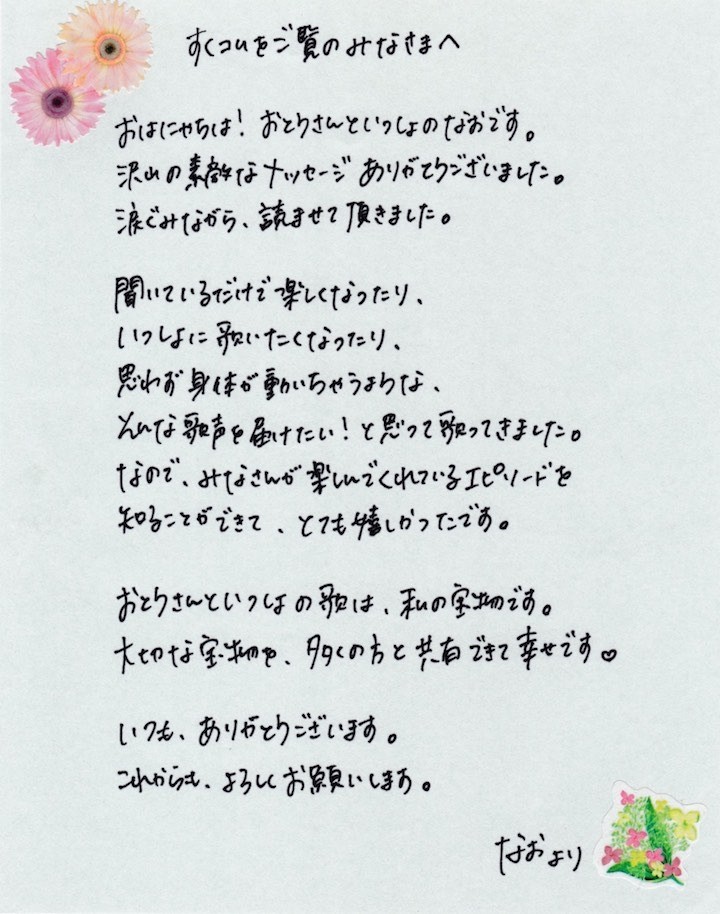 すくコムをご覧のみなさまへ
おはにゃちは！おとうさんといっしょのなおです。
沢山の素敵なメッセージありがとうございました。
涙ぐみながら、読ませて頂きました。
聞いているだけで楽しくなったり、
いっしょに歌いたくなったり、
思わず身体が動いちゃうような、
そんな歌声を届けたい！と思って歌ってきました。
なので、みなさんが楽しんでくれているエピソードを
知ることができて、とても嬉しかったです。
おとうさんといっしょの歌は、私の宝物です。
大切な宝物を、多くの方と共有できて幸せです♡
いつも、ありがとうございます。
これからも、よろしくお願いします。
なおより